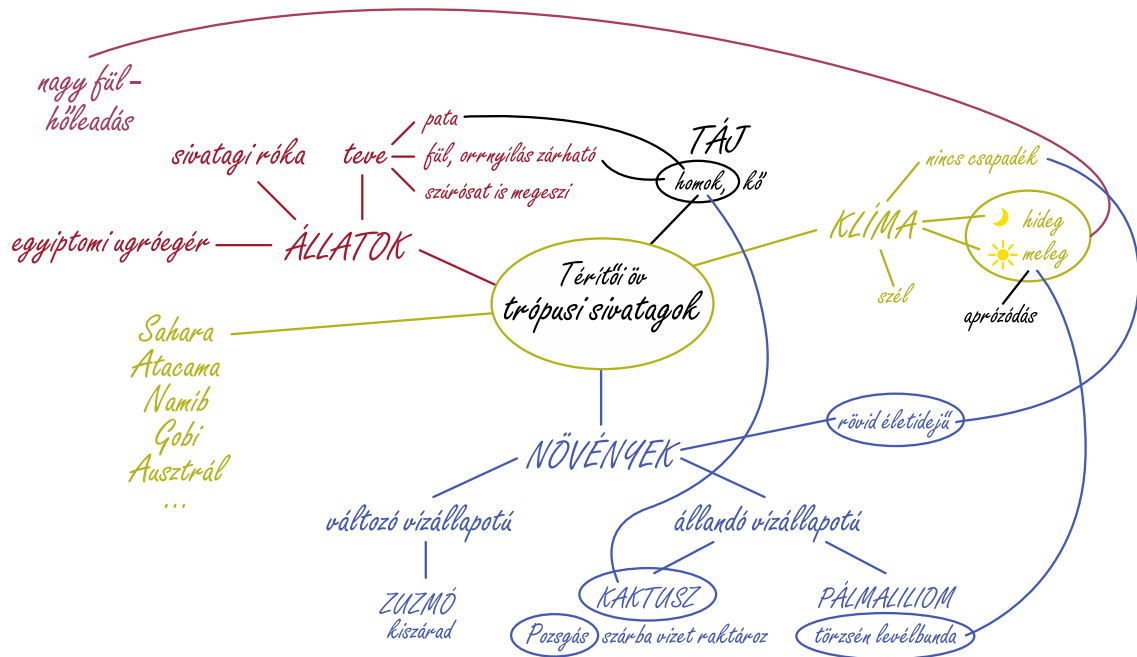 nagy fül –
hőleadás
sivatagi róka
teve
pata
fül, orrnyílás zárható
szúrósat is megeszi
egyiptomi ugróegér
ÁLLATOK
TÁJ
homok, kő
nincs csapadék
KLÍMA
hideg
meleg
szél
aprózódás
Térítői öv
trópusi sivatagok
Sahara
Atacama
Namib
Gobi
Ausztrál
...
rövid életidejű
NÖVÉNYEK
változó vízállapotú
állandó vízállapotú
ZUZMÓ
kiszárad
KAKTUSZ
Pozsgás szárba vizet raktároz
PÁLMALILIOM
törzsén levélbunda